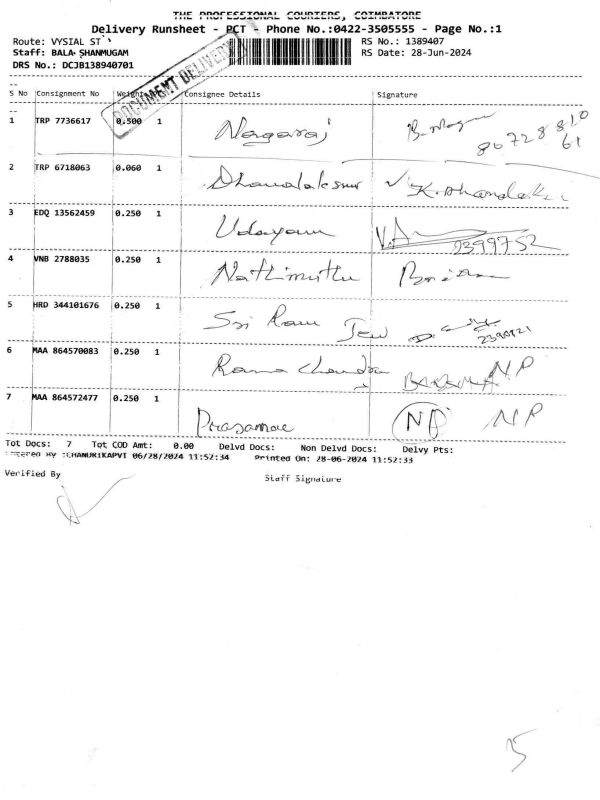 THE PROFESSIONAL COURIERS, COIMBATORE
Delivery Runsheet - PCT - Phone No.:0422-3505555 - Page No.:1
Route: VYSIAL ST RS No.: 1389407
Staff: BALA SHANMUGAM RS Date: 28-Jun-2024
DRS No.: DCJB138940701
DOCUMENT DELIVERY
S No Consignment No Weight Consignee Details Signature
1 TRP 7736617 0.500 1 Nagaraj
80728810
61
2 TRP 6718063 0.060 1
3 EDQ 13562459 0.250 1 Udayam 2399752
4 VNB 2788035 0.250 1 Nathimuthu
5 HRD 344101676 0.250 1 Sri Ram Jew
6 MAA 864570083 0.250 1 Rama Chandra NP
7 MAA 864572477 0.250 1 NP NP
Tot Docs: 7 Tot COD Amt: 0.00 Delvd Docs: Non Delvd Docs: Delvy Pts:
Entered By :CHANDRIKAPVT 06/28/2024 11:52:34 Printed On: 28-06-2024 11:52:33
Verified By Staff Signature